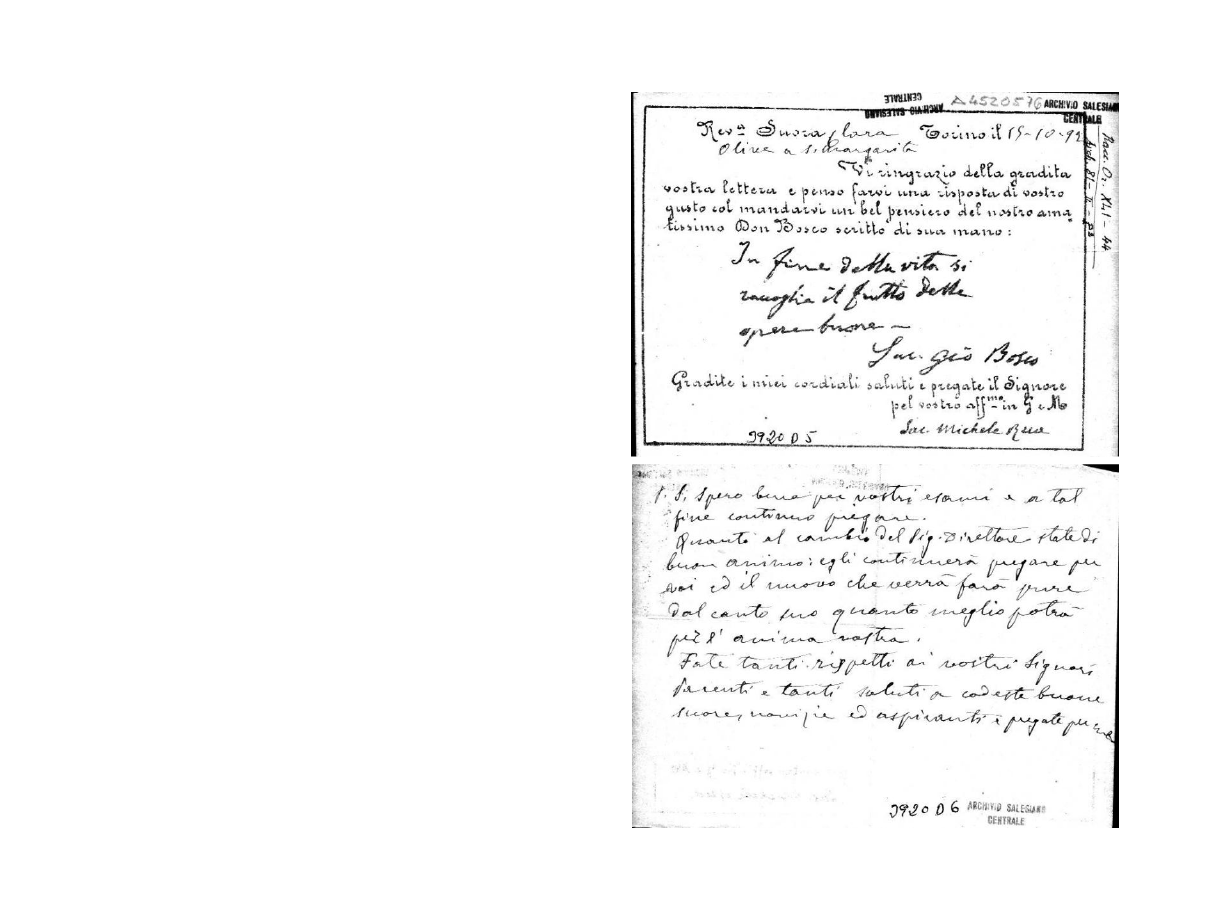 ARCHIVIO SALESIANO
CENTRALE
A4520576 ARCHIVIO SALESIANO
CENTRALE
Rev.a Suora Clara Torino il 15-10-92
Olive a S. Margarita
Vi ringrazio della gradita
vostra lettera e penso farvi una risposta di vostro
gusto col mandarvi un bel pensiero del nostro ama
tissimo Don Bosco scritto di sua mano:
In fine della vita si
raccoglie il frutto delle
opere buone —
Sac. Gio Bosco
Gradite i miei cordiali saluti e pregate il Signore
pel vostro aff.mo in G e M
Sac. Michele Rua
3920 D 5
P. S. Spero bene pei vostri esami e a tal
fine continuo pregare.
Quanto al cambio del Sig. Direttore state di
buon animo: egli continuerà pregare per
voi ed il nuovo che verrà farà pure
dal canto suo quanto meglio potrà
per l'anima vostra.
Fate tanti rispetti ai vostri Signori
Parenti e tanti saluti a codeste buone
suore, novizie ed aspiranti e pregate per me
3920 D 6 ARCHIVIO SALESIANO
CENTRALE